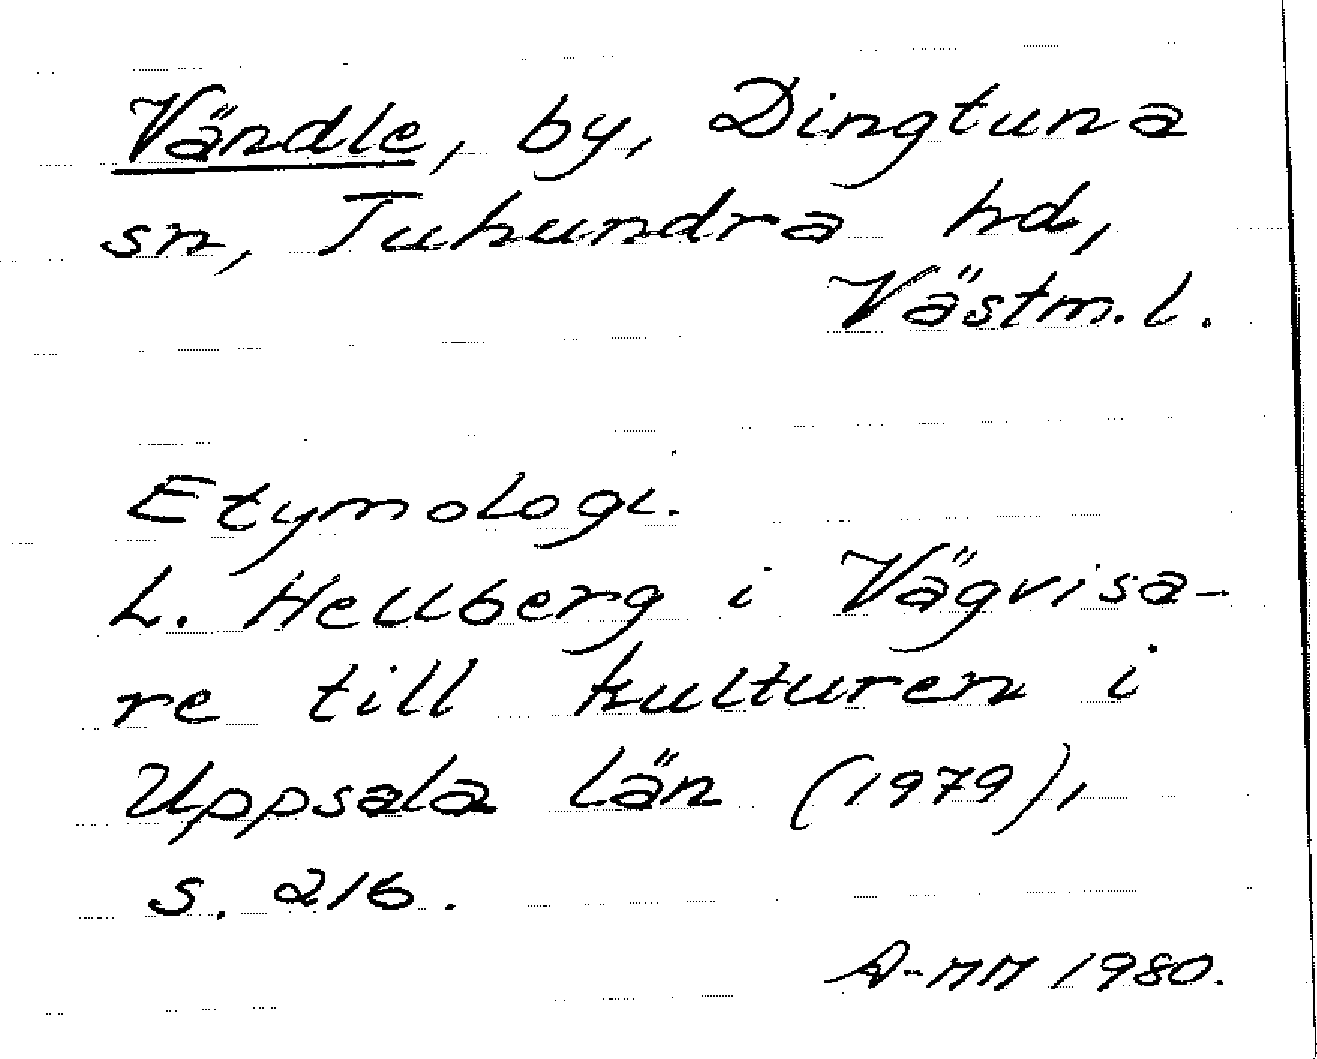 Vändle, by, Dingtuna
sn, Tuhundra hd,
Västm. l.
Etymologi.
L. Hellberg i Vägvisa-
re till kulturen i
Uppsala län (1979),
s. 216.
A-MM 1980.